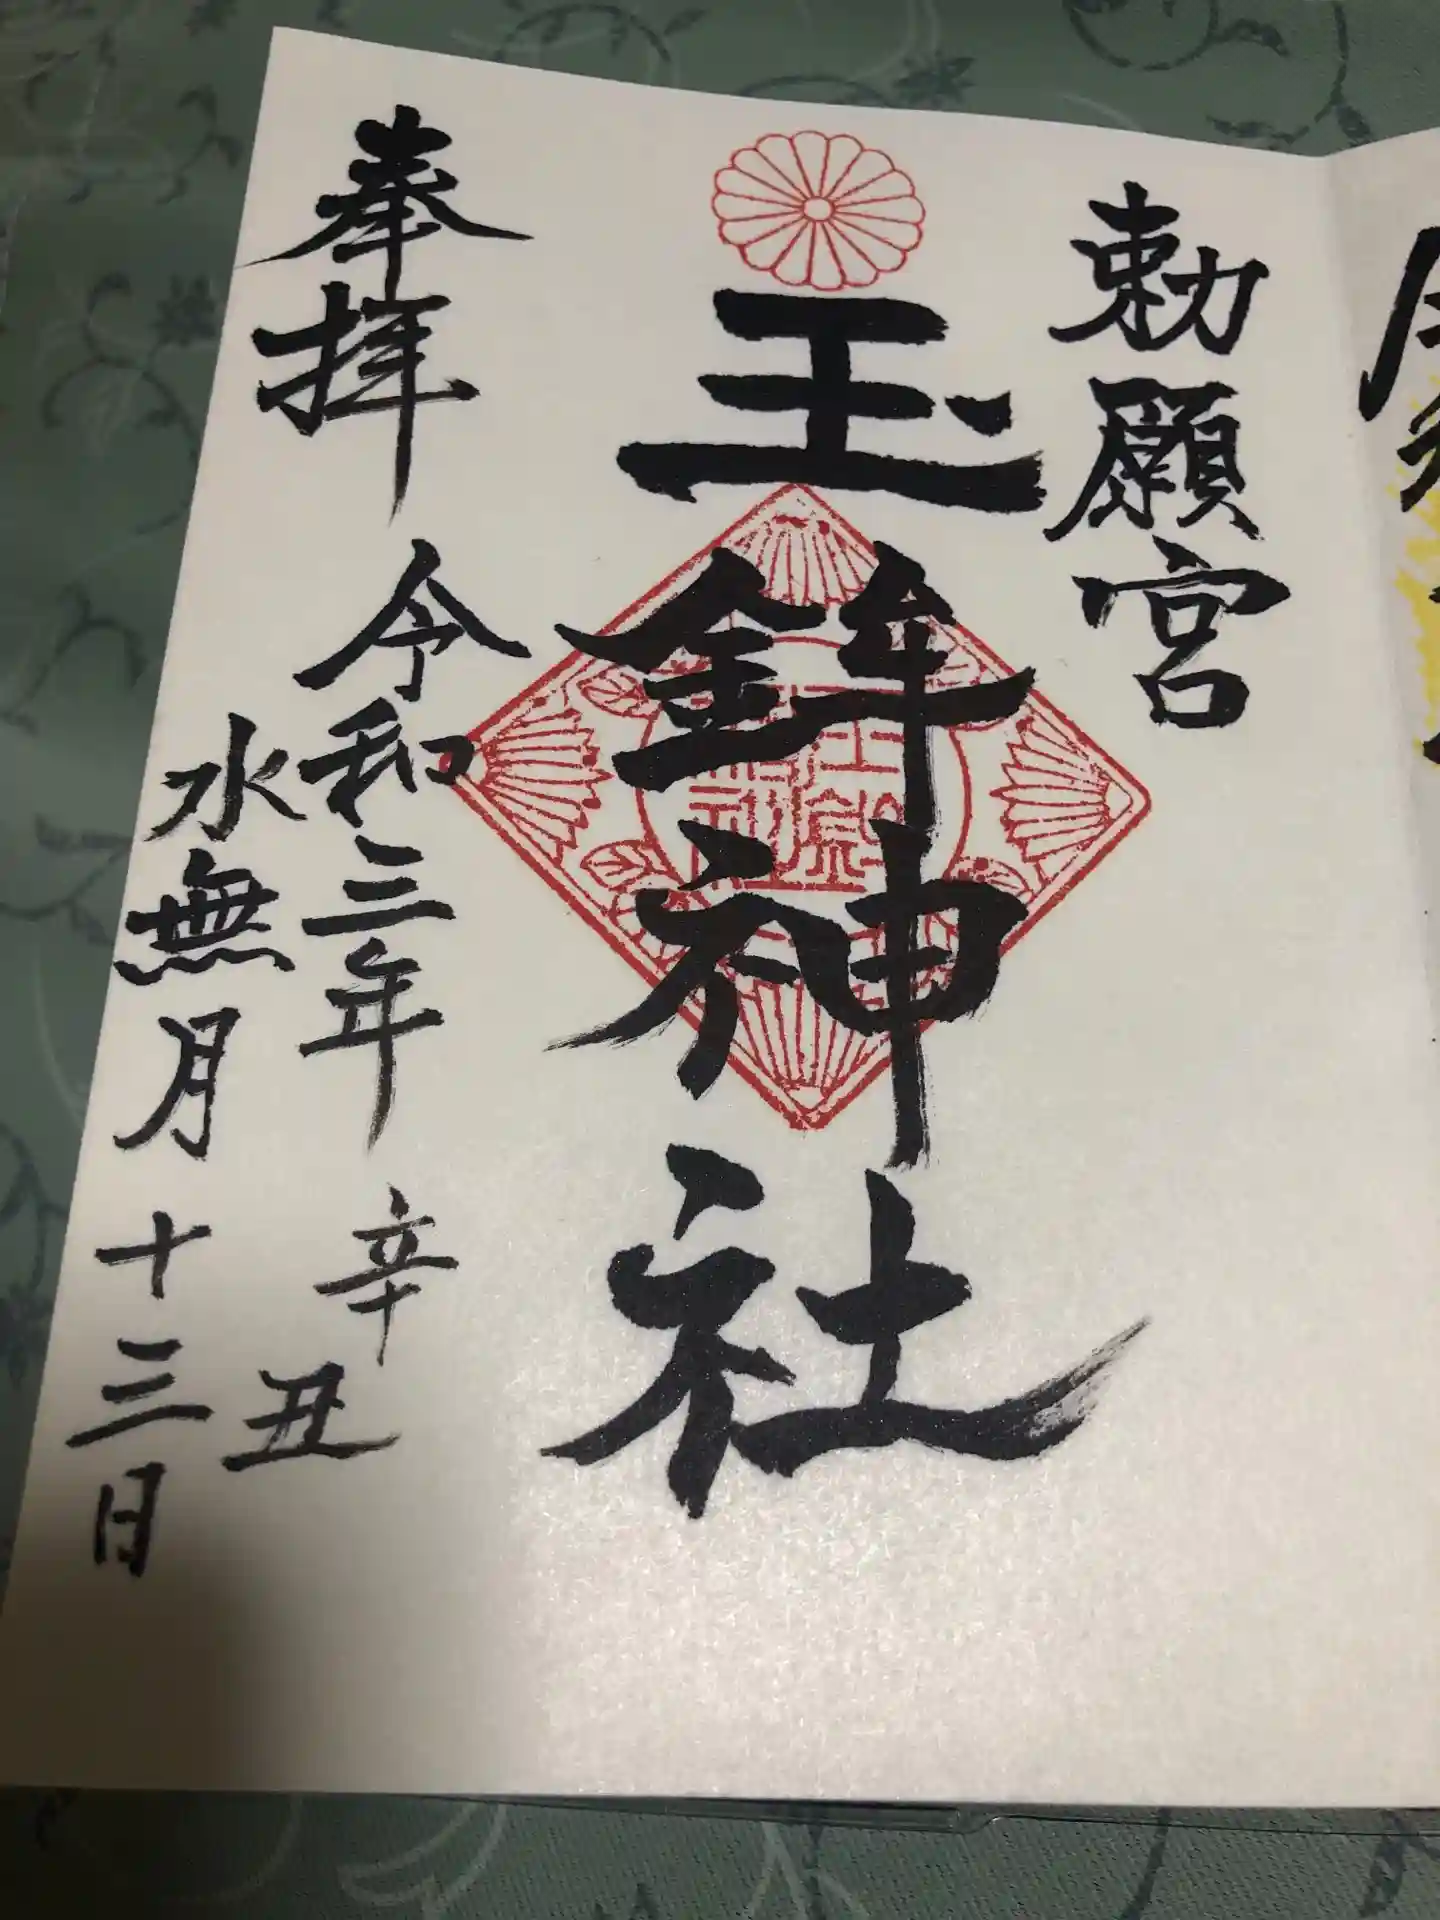 勅願宮
玉鉾神社
奉拝
令和三年 辛丑
水無月十三日